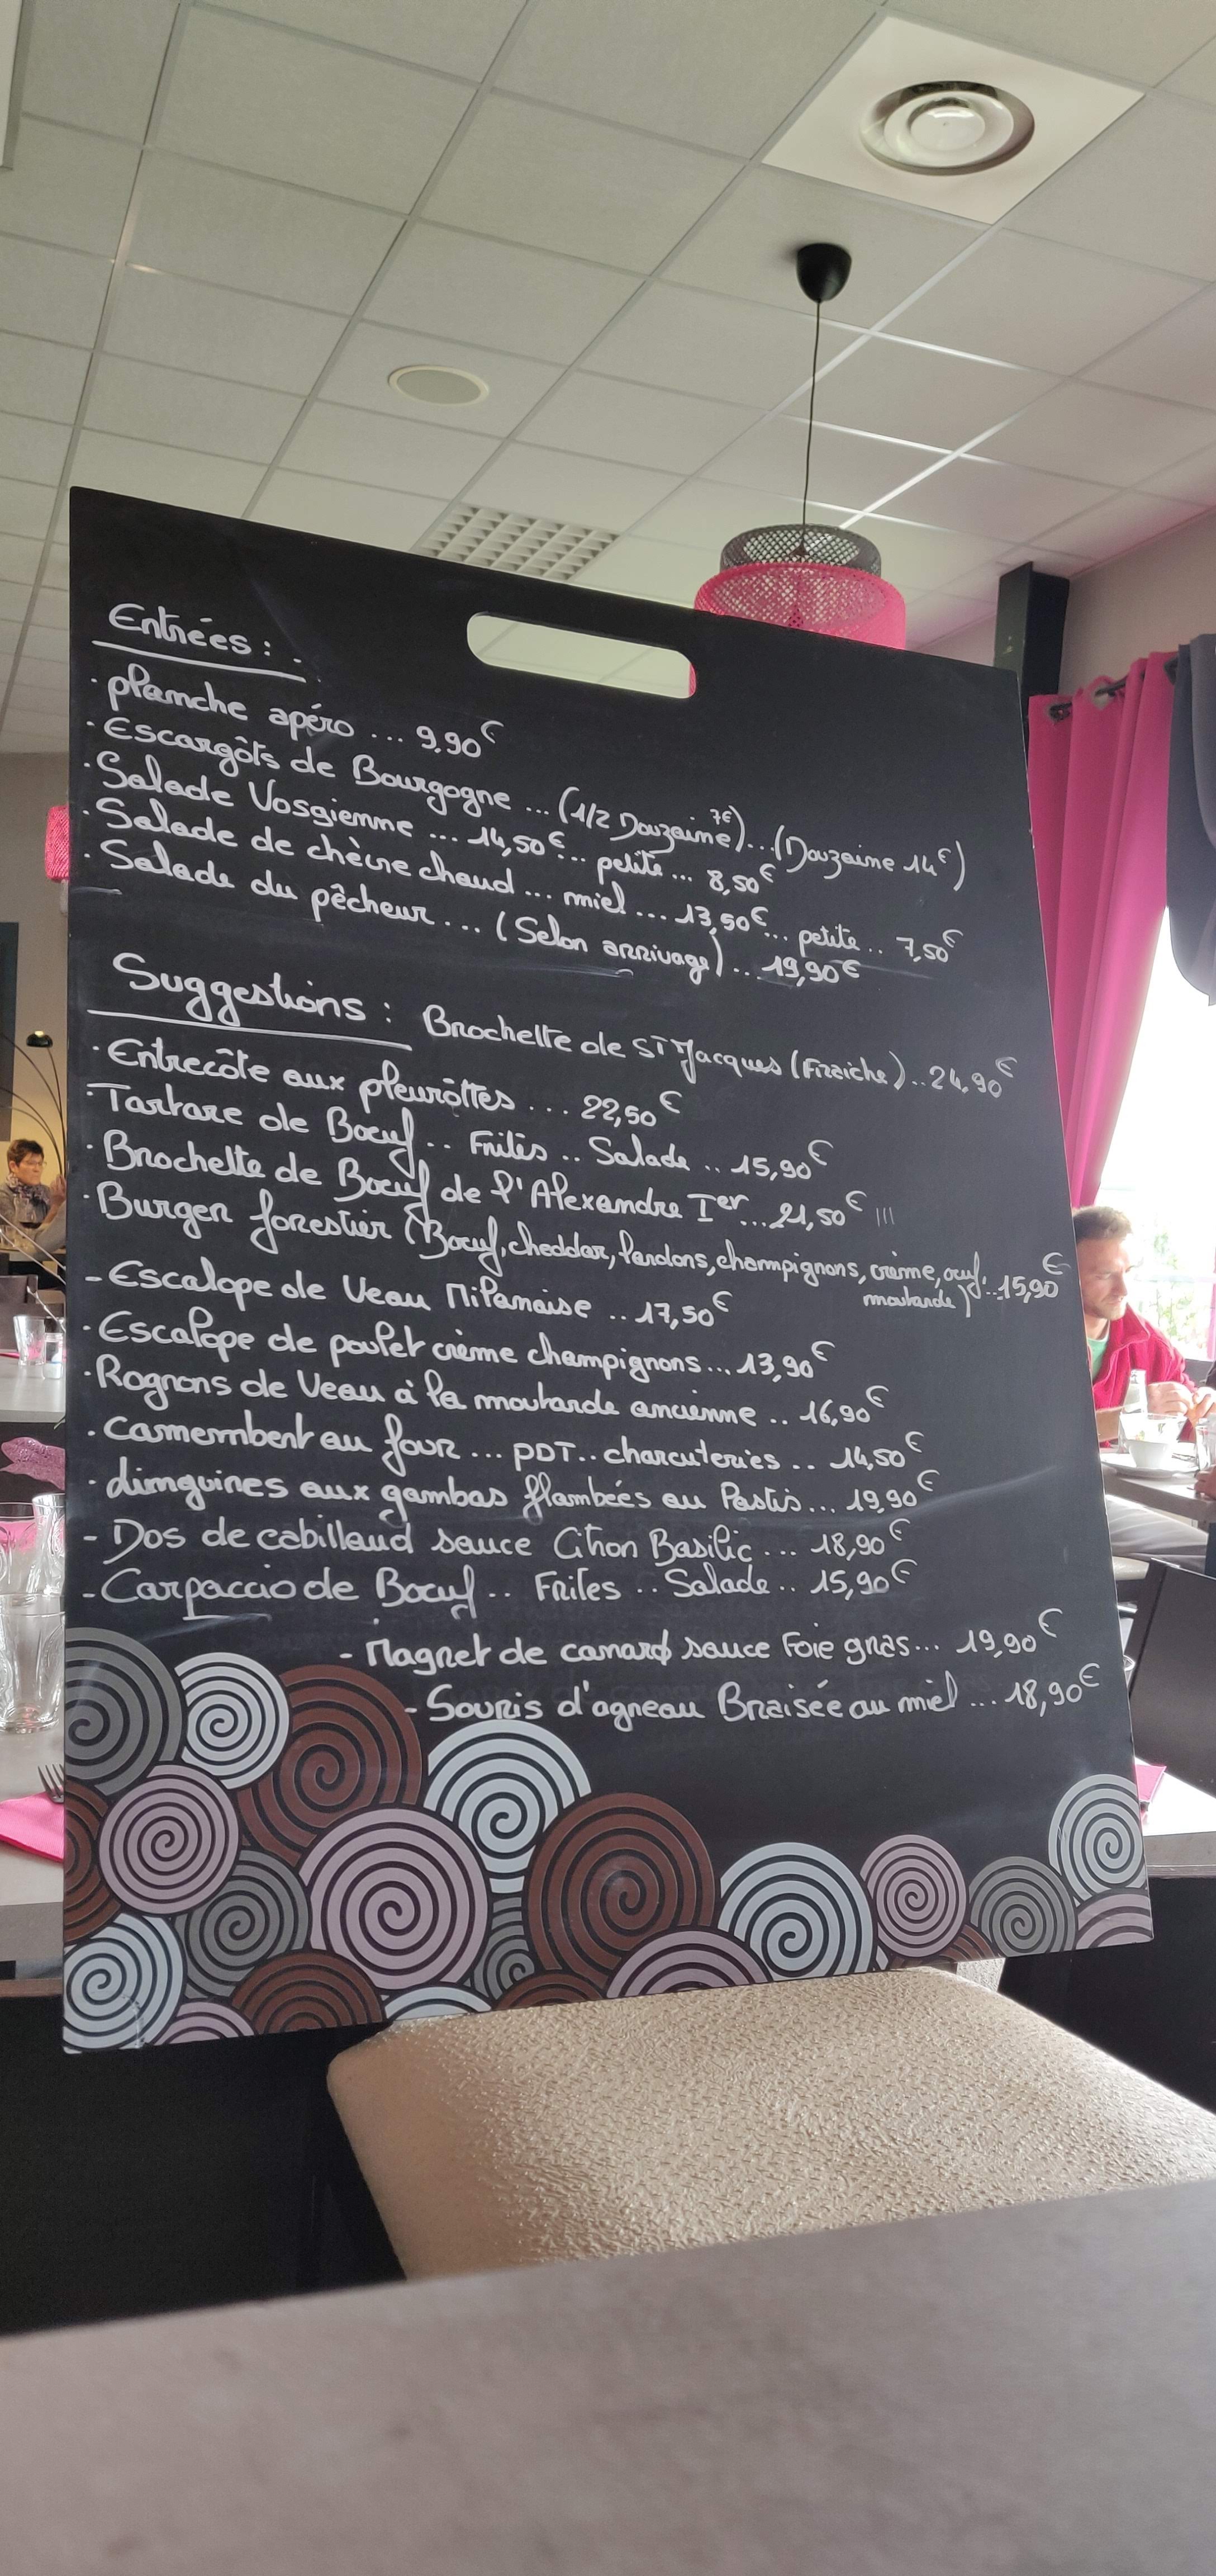 Entrées :
· planche apéro ... 9,90€
· Escargôts de Bourgogne ... (1/2 Douzaine 7€) ... (Douzaine 14€)
· Salade Vosgienne ... 14,50€ ... petite ... 8,50€
· Salade de chèvre chaud ... miel ... 13,50€ ... petite .. 7,50€
· Salade du pêcheur ... (Selon arrivage) ... 19,90€
Suggestions : Brochette de ST Jacques (Fraiche) .. 24,90€
· Entrecôte aux pleurôttes ... 22,50€
- Tartare de Boeuf .. Frites .. Salade .. 15,90€
· Brochette de Boeuf de l'Alexandre Ier ... 21,50€
· Burger forestier (Boeuf, cheddar, lardons, champignons, crème, oeuf, moutarde) ... 15,90€
- Escalope de Veau Milanaise .. 17,50€
· Escalope de poulet crème champignons ... 13,90€
· Rognons de Veau à la moutarde ancienne .. 16,90€
· Camembert au four ... PDT .. charcuteries .. 14,50€
· linguines aux gambas flambées au Pastis ... 19,90€
- Dos de cabillaud sauce Citron Basilic ... 18,90€
- Carpaccio de Boeuf .. Frites .. Salade .. 15,90€
- Magret de canard sauce Foie gras ... 19,90€
- Souris d'agneau Braisée au miel ... 18,90€